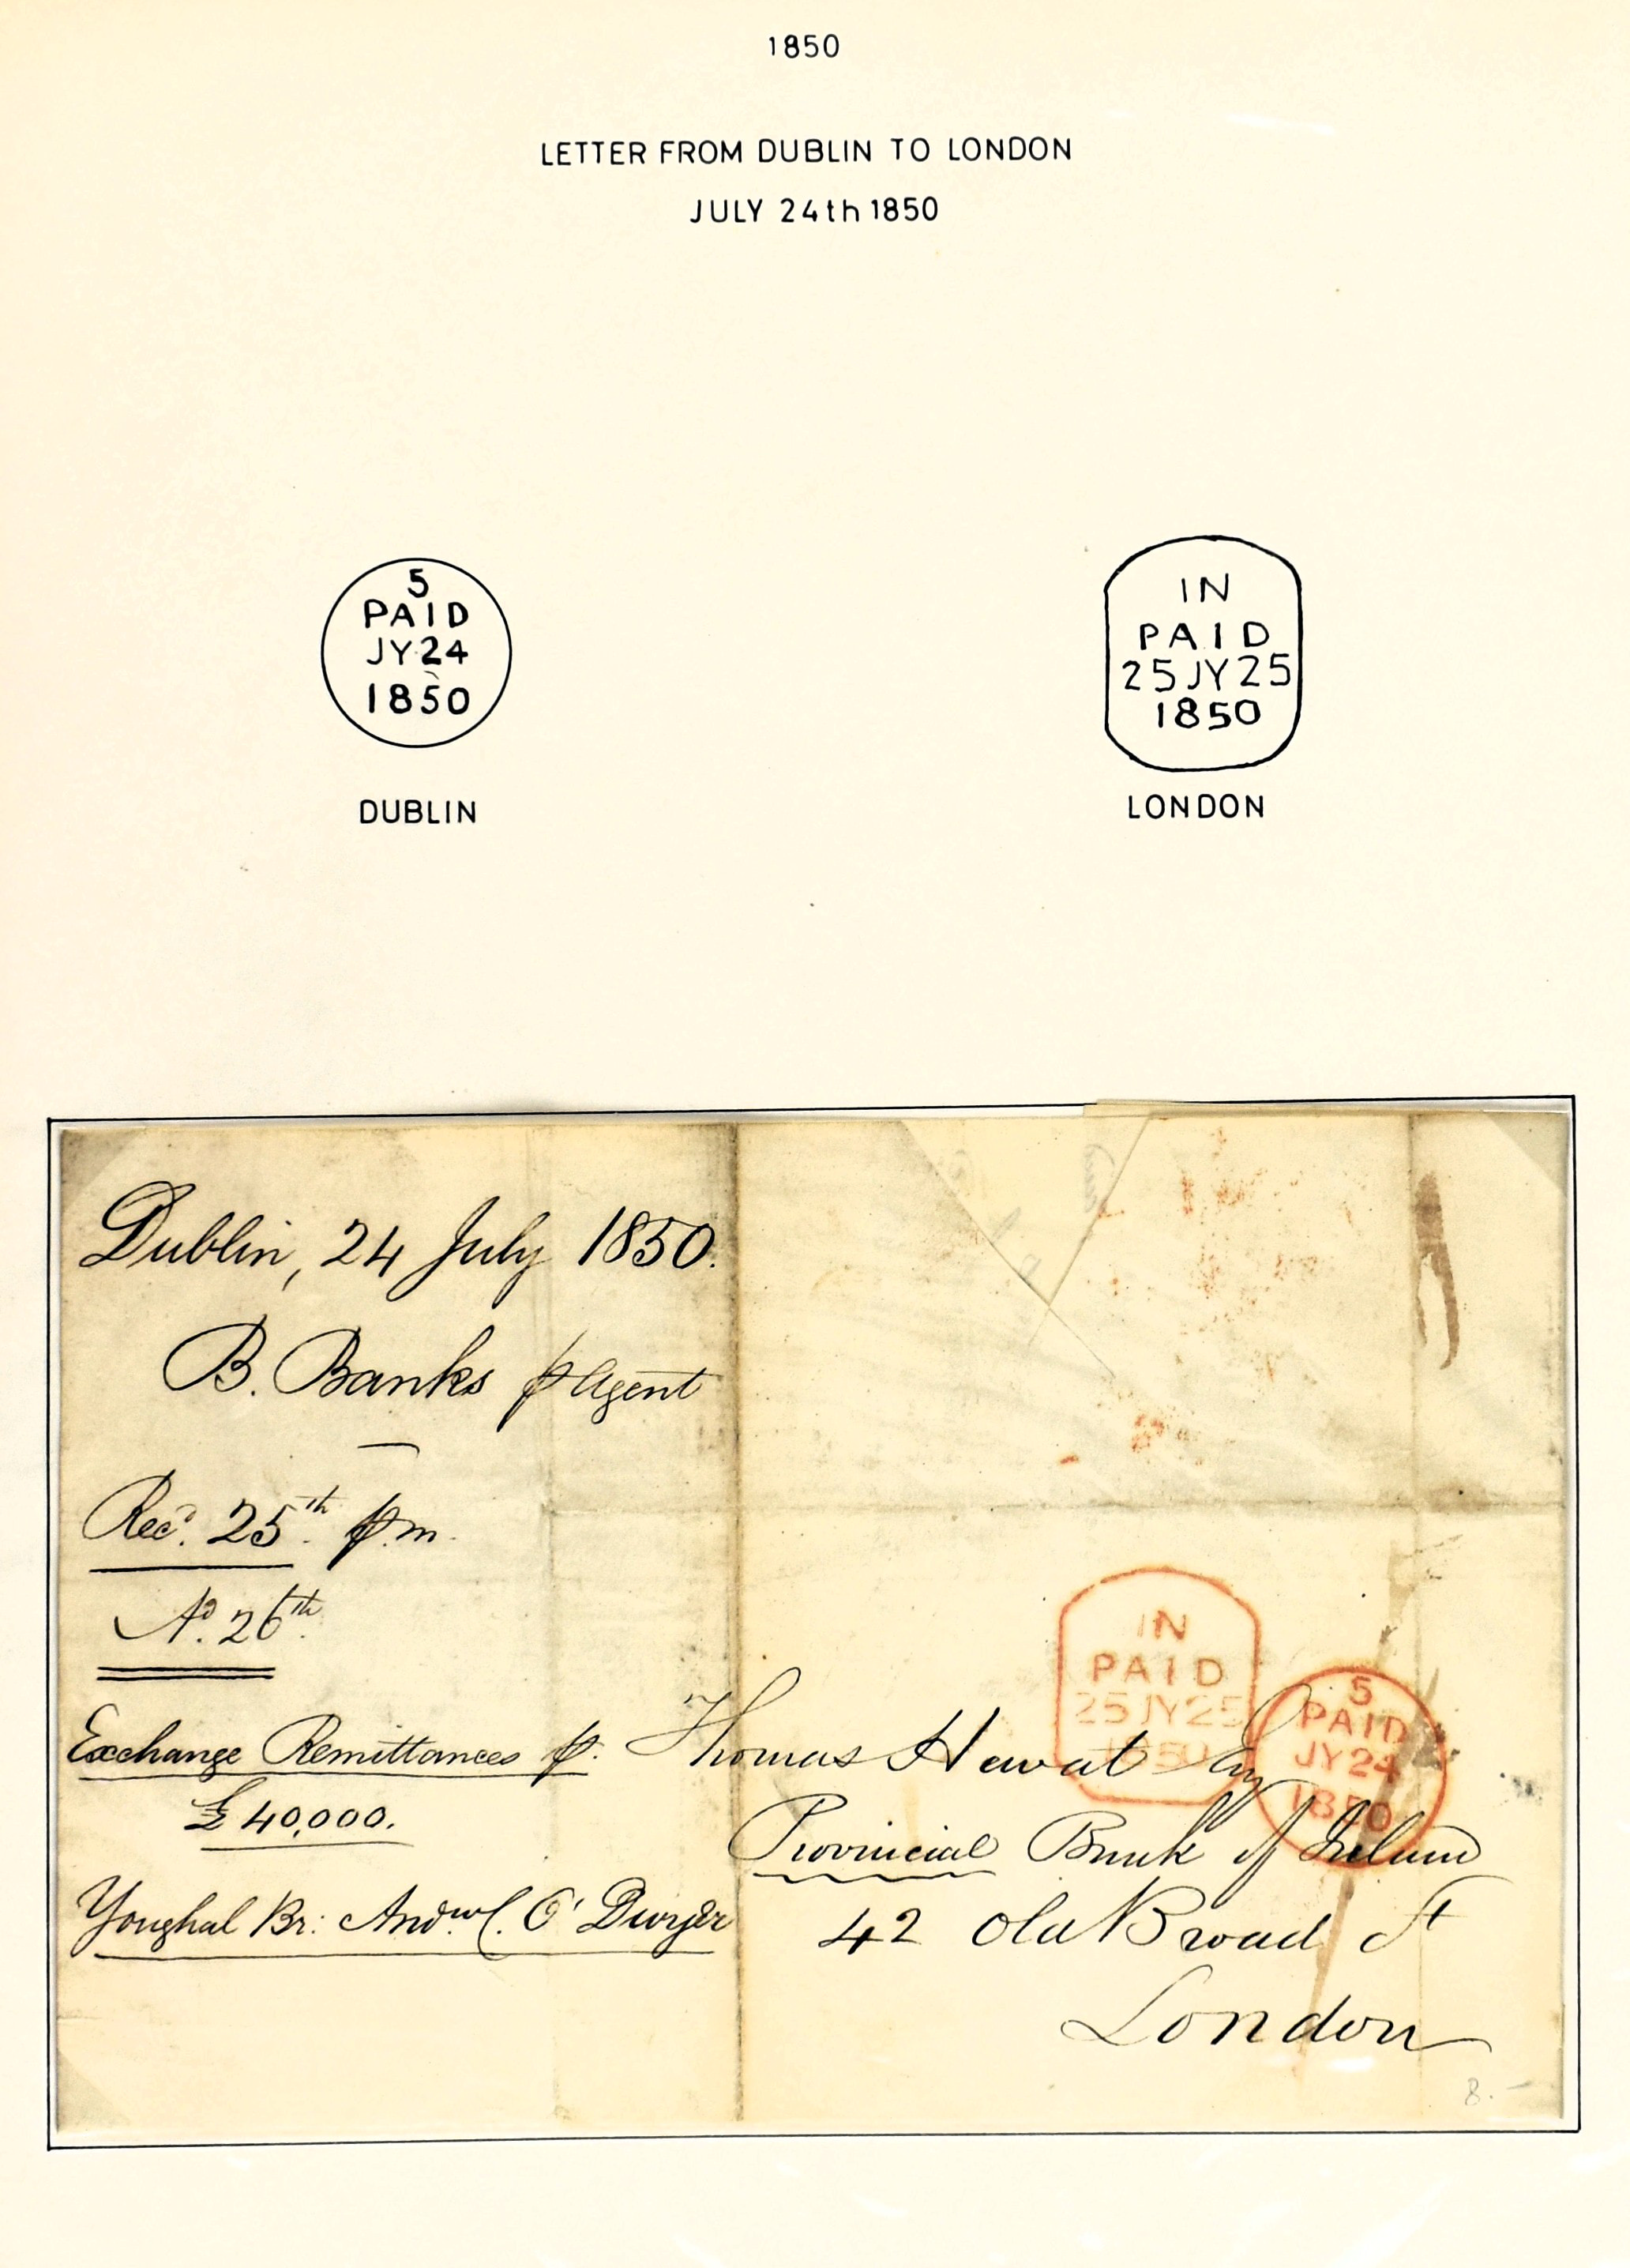 1850
LETTER FROM DUBLIN TO LONDON
JULY 24th 1850
5
PAID
JY 24
1850
DUBLIN
IN
PAID
25 JY 25
1850
LONDON
Dublin, 24 July 1850.
B. Banks p Agent
Recd. 25th p.m.
Ad. 26th
Exchange Remittances p.
£40,000.
Youghal Br: Andw. C. O'Dwyer
IN
PAID
25 JY 25
1850
5
PAID
JY 24
1850
Thomas Hewat Esq
Provincial Bank of Ireland
42 Old Broad St
London
8.-